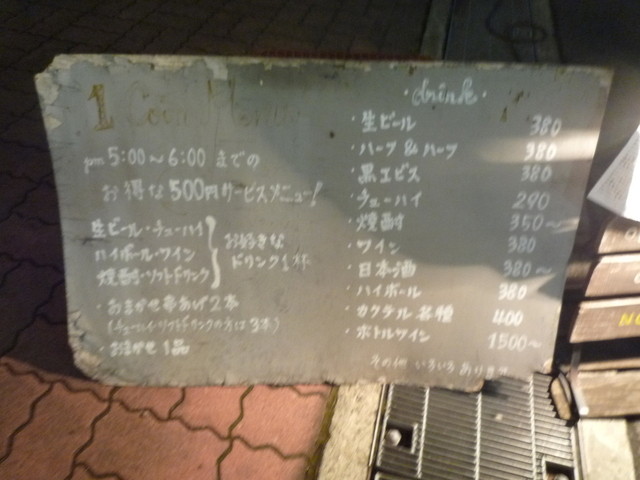 1 Coin Menu
pm 5:00〜6:00 までの
お得な500円サービスメニュー!
生ビール・チューハイ
ハイボール・ワイン
焼酎・ソフトドリンク
お好きな
ドリンク1杯
・おまかせ串あげ2本
(チューハイ・ソフトドリンクの方は3本)
・おまかせ1品
・drink・
・生ビール 380
・ハーフ&ハーフ 380
・黒エビス 380
・チューハイ 290
・焼酎 350〜
・ワイン 380
・日本酒 380〜
・ハイボール 380
・カクテル各種 400
・ボトルワイン 1500〜
その他 いろいろ あります